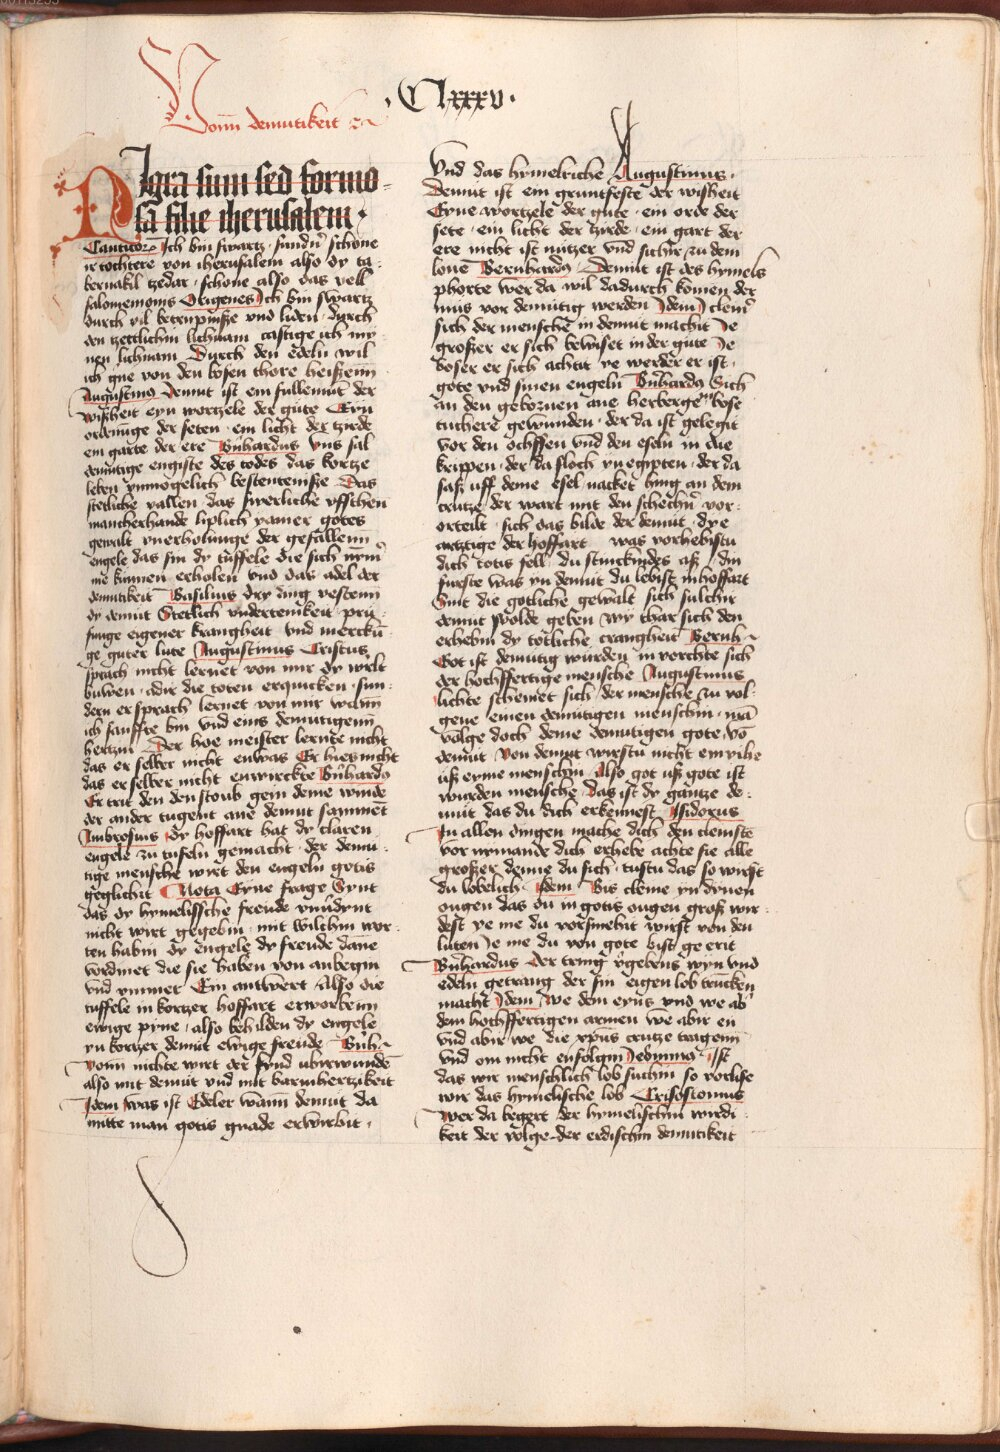 · Clxxxv ·
Vonn demutikeit
NIgra sum sed formo-
sa filie iherusalem ·
Canticorum Ich bin swartz · sundern schone
ir tochtere von iherusalem also dy ta-
bernakil zedar · schone also das vell
salomemoms Origenes Ich bin swartz
durch vil betrupnisze und liden · durch
den zcettlichin lichnam castige ich my-
nen lichnam Durch den edeln wil
ich gne von den bosen thore heiszenn
Augustinus Demut ist ein fullemunt der
wiszheit eyn wortzele der gute Eyn
ordenunge der seten · ein licht der tzirde
ein garte der ere Bernhardus uns sal
demutige engiste des todes das kortze
leben ynmogelich bestentenisze Das
stetliche vallen das swerliche uffsthen
mancherhande liplich yamer gotes
gewalt vnerholunge der gefallenn
engele das sin dy tuffele die sich nym
me kunnen erholen und das adel der
demutikeit Basilius dry ding vestenn
dy demut Stetlich undertenikeit pru-
funge eigener krangheit und merckun
ge guter lute Augustinus Cristus
sprach nicht lernet von mir dy werlt
buwen · adir die toten erquicken · sun-
dern er sprach lernet von mir wann
ich sanffte bin und eins demutigenn
hertzin Der hoe meister lernte nicht
das er selber nicht enwas Er hies nicht
das er selber nicht enwirckte Bernhardus
Er trit den den stoub gein deme winde
der ander tugent ane demut sammet
Ambrosius dy hoffart hat dy claren
engele zu tufeln gemacht · der demu-
tige mensche wirt den engeln gotis
geglichit Nota Eyne frage Synt
das dy hymelissche freude vmbdynt
nicht wirt gegebin · mit wilchin wor-
ten habin dy engele dy freude dane
vordinet die sie haben von anbegin
und ymmer Ein antwert Also die
tuffele in kortzer hoffart erworbenn
ewige pyne · also behilden dy engele
yn kortzer demut ewige freude Bernhardus
Vonn nichte wirt der fynd ubirwunden
also mit demut und mit barmhertzikeit
Idem was ist Edeler wann demut da
mitte man gotis gnade erwirbit ·
Und das hymelriche Augustinus ·
Demut ist ein gruntfeste der wiszheit
Eyne wortzele der gute · ein orde der
sete · ein licht der tzirde · ein gart der
ere nicht ist nutzer und sichir zu dem
lone Bernhardus Demut ist des hymels
phorte wer da wil dadurch komen der
mus vor demutig werden Idem clein
sich der mensche in demut macht Je
groszer er sich bewiset in der gute Je
boser er sich achtit ye werder er ist ·
gote und sinen engeln Bernhardus Sich
an den gebornen ane herberge bose
tuchere gewunden · der da ist gelegit
vor den ochssen und den eseln in die
krippen · der da floch yn egipten · der da
sasz uff deme esel nacket hing an dem
crutze der wart mit den schechern vor-
orteilt sich das bilde der demut · dye
artztige der hoffart was vorhebistu
dich totis fell · du stinckindes asz din
furste was yn demut du lebist in hoffart
Sint die gotliche gewalt sich sulchir
demut wolde geben wy thar sich den
erhebin dy totliche crangheit Bernhardus
Got ist demutig wurden in vorchte sich
der hochffertige mensche Augustinus
lichte schemet sich der mensche zu vol-
gene einen demutigen menschin · nu
volge doch deme demutigen gote von
demut von demut wirstu nicht ein vihe
usz eyme menschin Also got usz gote ist
wurden mensche das ist dy gantze de-
mut das du dich erkennest Isidorus
In allen dingen mache dich den cleinsten
vor nymande dich erhebe achte sie alle
groszer denne du sich · tustu das so wirst
du lobelich · Idem Bis cleine yn dynen
ougen das du in gotis ougen grosz wir-
dest ye me du vorsmehit wirst von den
luten Je me du von gote bist ge erit
Bernhardus Der tring vergebens wyn und
edeln getrang der sin eigen lob trucken
macht Idem We dem eyns und we ab
dem hochffertigen armen we abir en
und abir we die xpus crutze tragenn
und om nicht enfolgin Jeronimus Ist
das wir menschlich lob suchin so vorlise
wir das hymelische lob Crisostomus
Wer da begert der hymelischin wirdi-
keit der volge der erdischin demutikeit